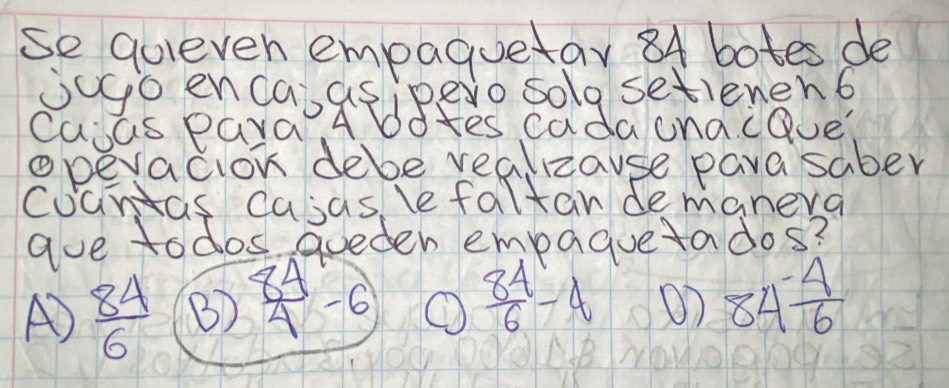 Se quieren empaquetar 84 botes de
jugo en cajas, pero solo se tienen 6
Cajas para 4 botes cada una ¿Qué
operación debe realizarse para saber
cuántas cajas le faltan de manera
que todos queden empaquetados?
A) 84/6 B) 84/4 - 6 C) 84/6 - 4 D) 84 - 4/6